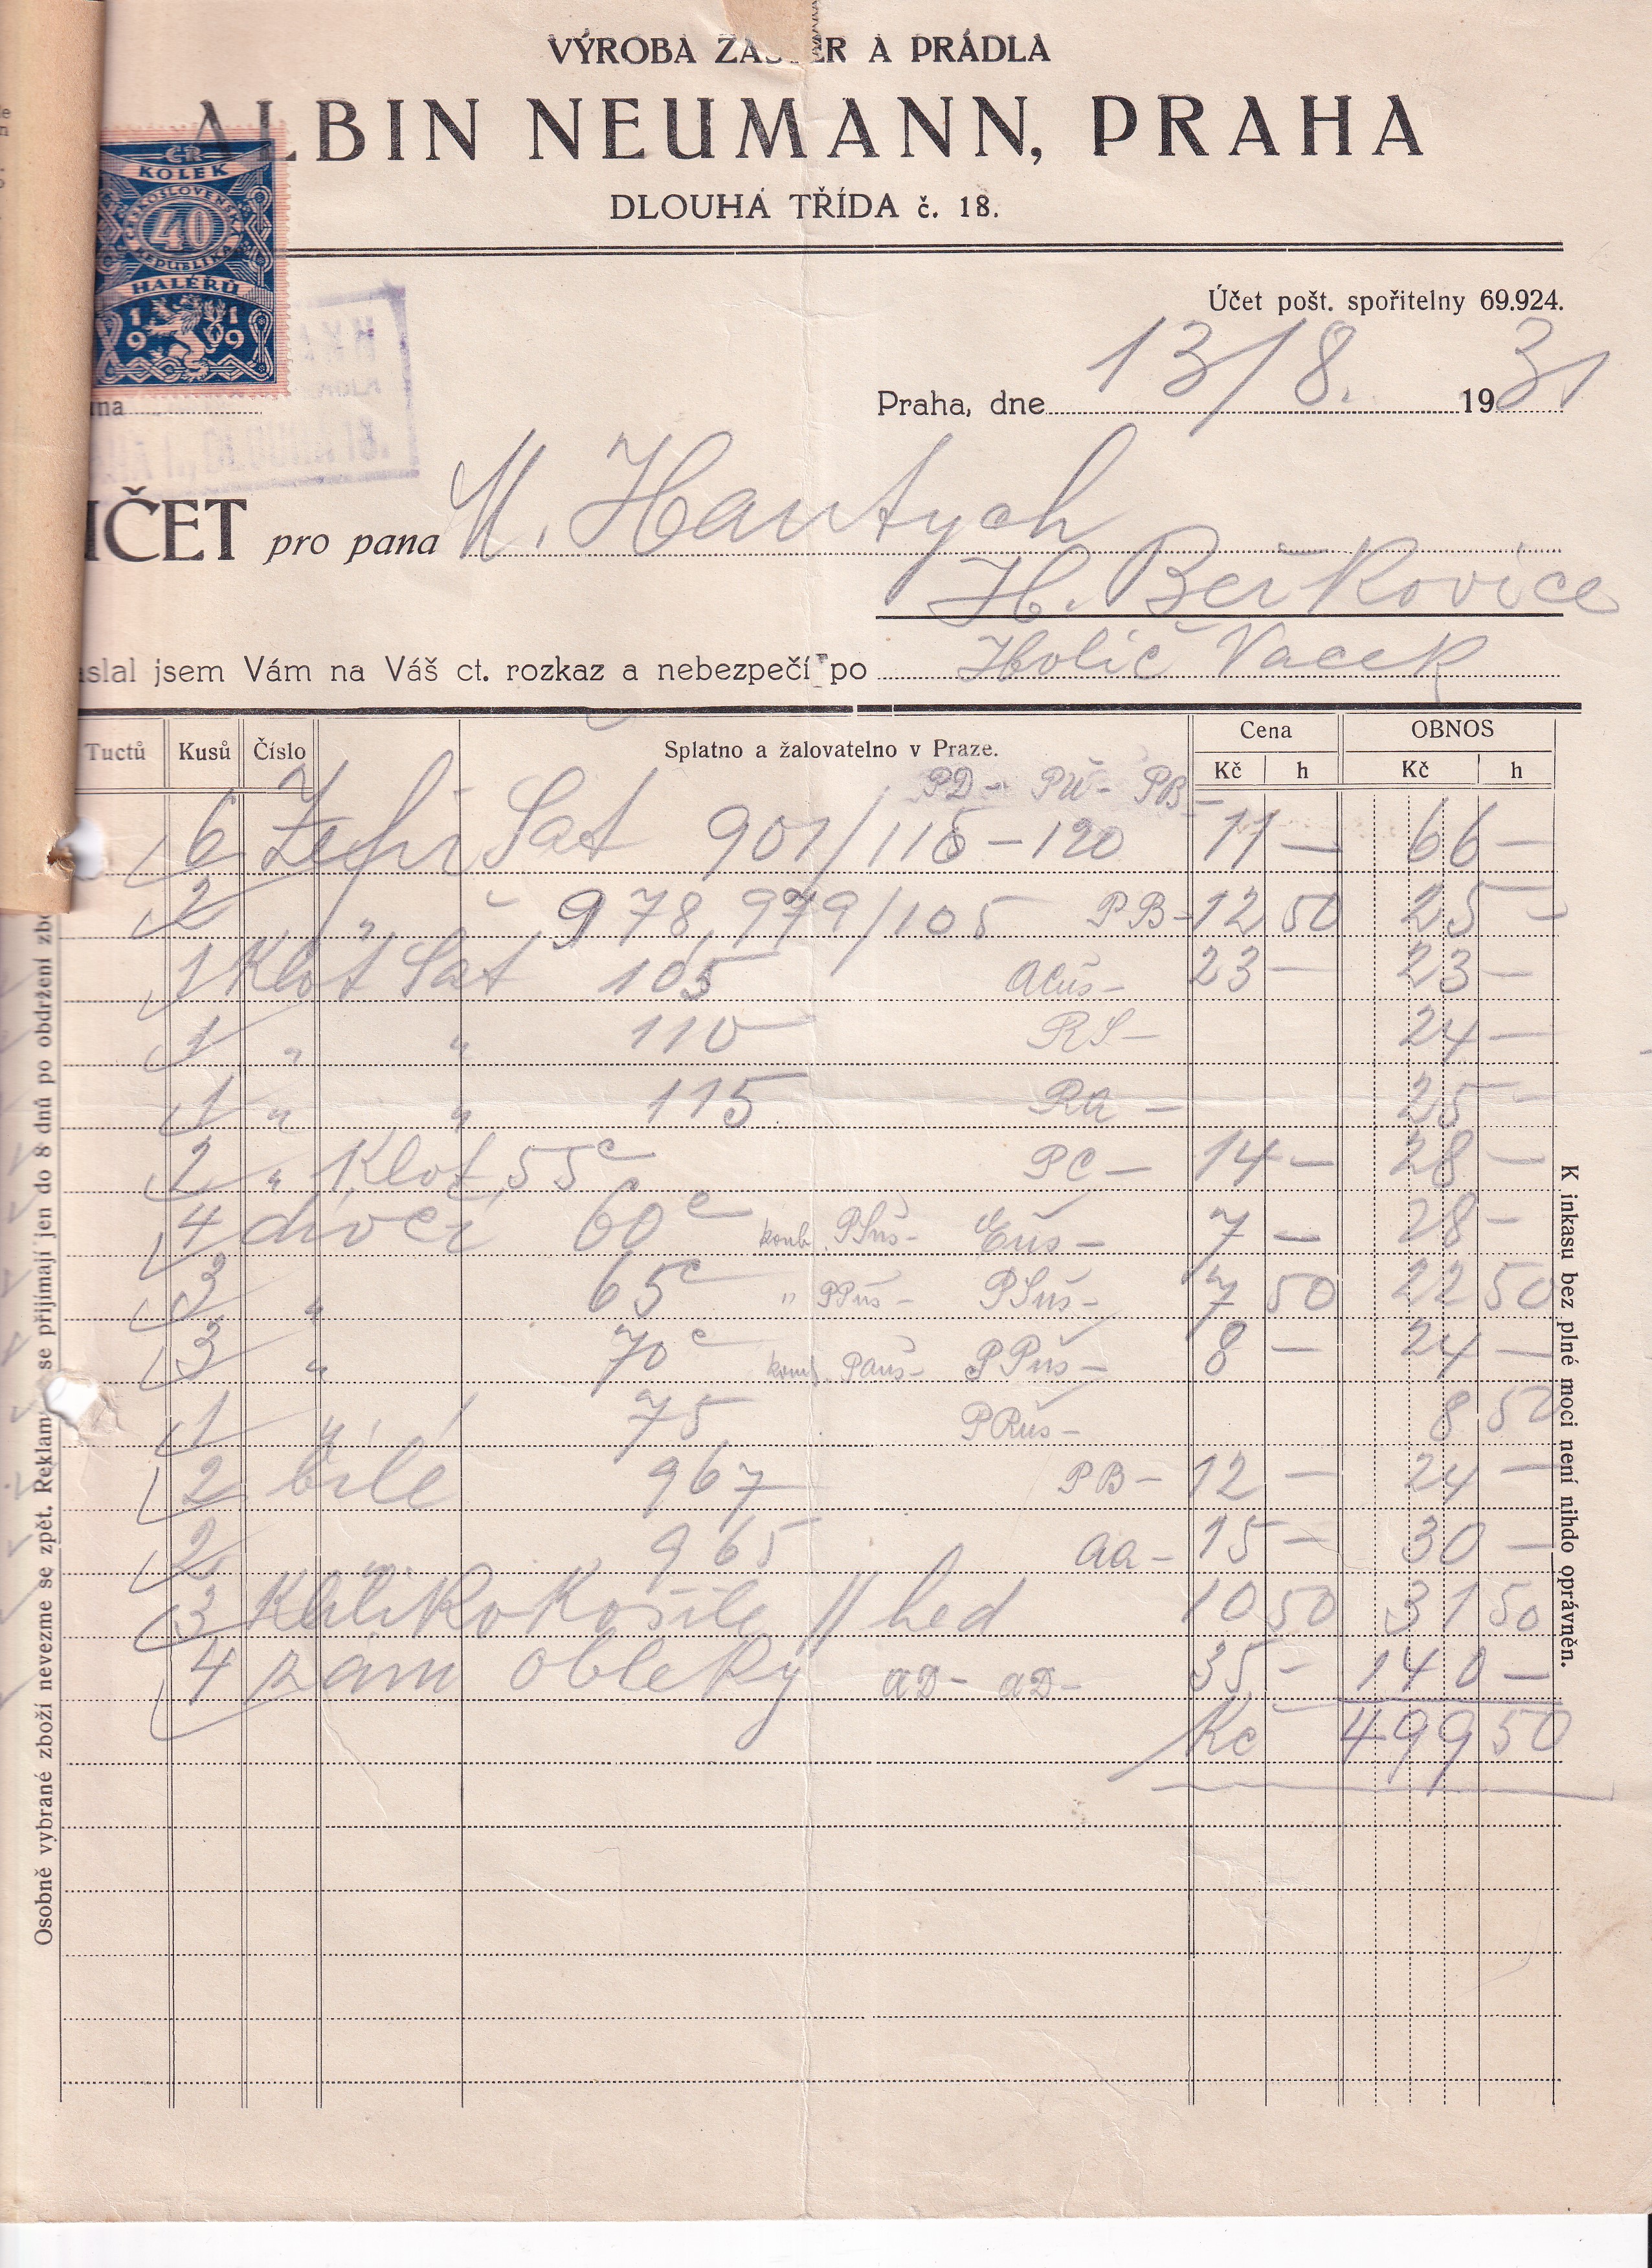 VÝROBA ZÁSTĚR A PRÁDLA
ALBIN NEUMANN, PRAHA
DLOUHÁ TŘÍDA č. 18.
ČR
KOLEK
ČESKOSLOVENSKÁ
40
REPUBLIKA
HALÉŘŮ
1919
Účet pošt. spořitelny 69.924.
Praha, dne 13/8. 1931
ÚČET pro pana M. Hantych
H. Beřkovice
aslal jsem Vám na Váš ct. rozkaz a nebezpečí po Holič Vacek
Tuctů Kusů Číslo Splatno a žalovatelno v Praze. Cena OBNOS
Kč h Kč h
PD- PU- PB-
6 Zefir Šat 901/115-120 11 — 66 —
2 " 978, 979/105 PB- 12 50 25 —
1 Klot Šat 105 23 — 23 —
1 " " 110 RS- 24 —
1 " " 115 Ra- 25 —
2 " Klot 55 c PC- 14 — 28 —
4 dívčí 60 c komb. PSůs- Eůs- 7 — 28 —
3 " 65 c " PPůs- PSůs- 7 50 22 50
3 " 70 c komb. Paůs- PPůs- 8 — 24 —
1 " 75 PRůs- 8 50
2 bílé 967 PB- 12 — 24 —
2 965 aa- 15 — 30 —
3 Košile // hed 10 50 31 50
4 obleky aD- aD- 35 — 140 —
Kč 499 50
Osobně vybrané zboží nevezme se zpět. Reklam se přijímají jen do 8 dnů po obdržení zbo
K inkasu bez plné moci není nihdo oprávněn.